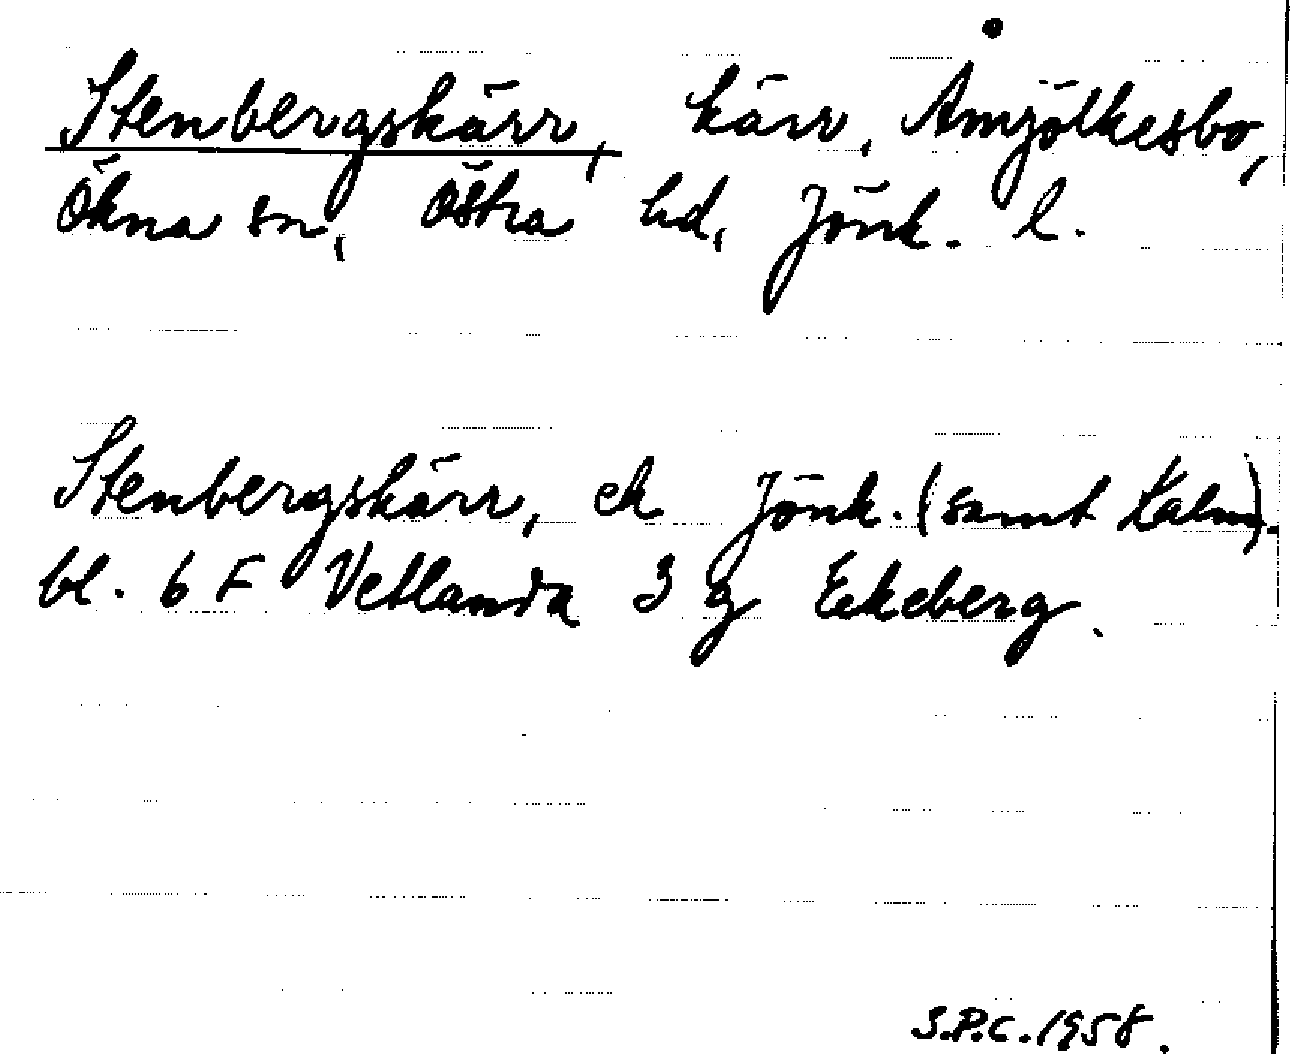 Stenbergskärr, kärr, Åmjölkesbo,
Ökna sn, Östra hd, Jönk. l.
Stenbergskärr, ek Jönk. (samt Kalm).
bl. 6 F Vetlanda 3 g Ekeberg.
S.P.C. 1958.